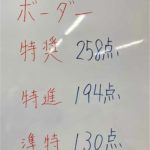 ボーダー
特奨 258点
特進 194点
準特 130点